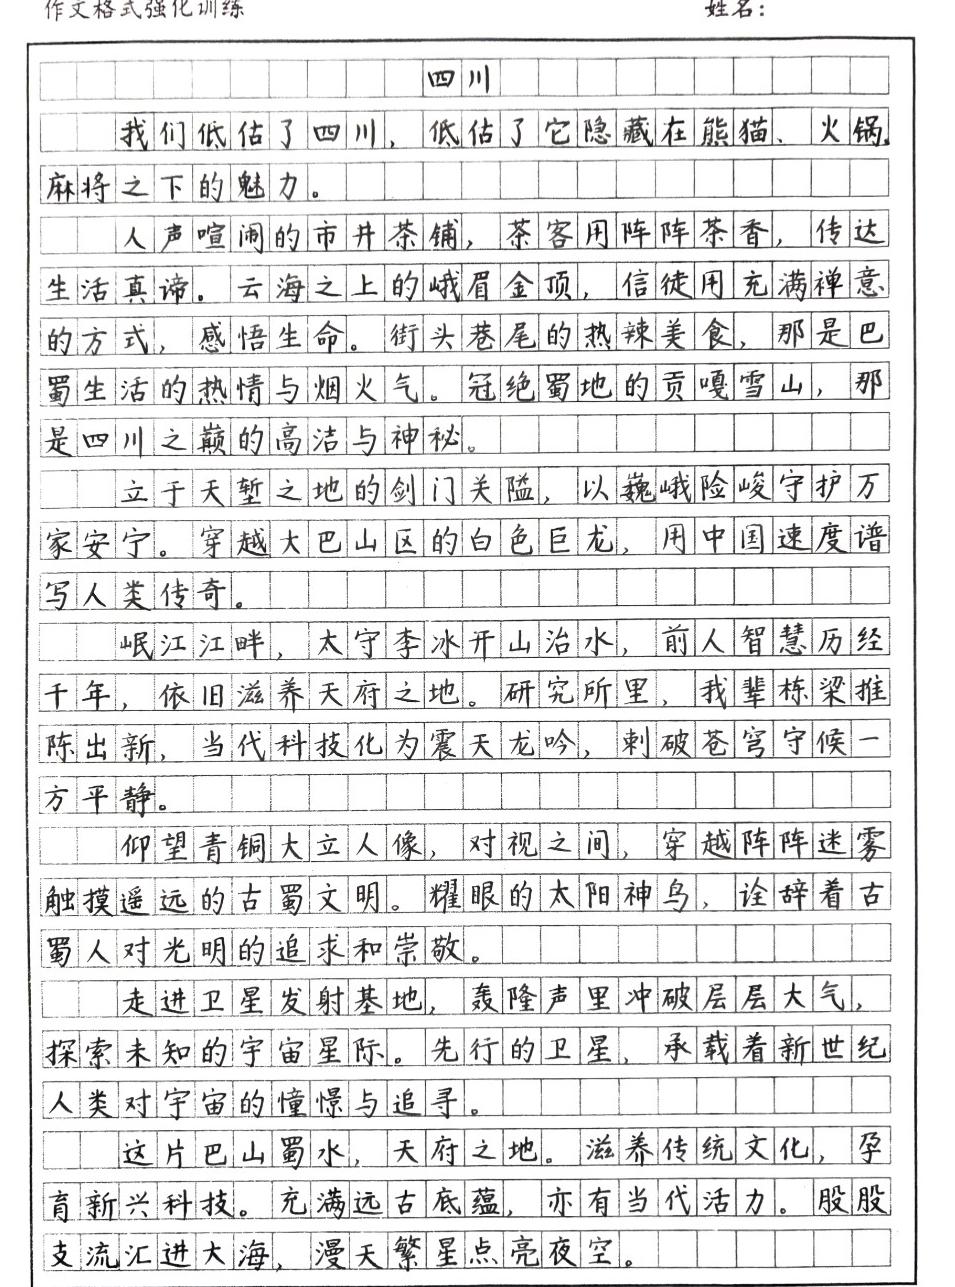 作文格式强化训练 姓名：
四川
我们低估了四川，低估了它隐藏在熊猫、火锅、
麻将之下的魅力。
人声喧闹的市井茶铺，茶客用阵阵茶香，传达
生活真谛。云海之上的峨眉金顶，信徒用充满禅意
的方式，感悟生命。街头巷尾的热辣美食，那是巴
蜀生活的热情与烟火气。冠绝蜀地的贡嘎雪山，那
是四川之巅的高洁与神秘。
立于天堑之地的剑门关隘，以巍峨险峻守护万
家安宁。穿越大巴山区的白色巨龙，用中国速度谱
写人类传奇。
岷江江畔，太守李冰开山治水，前人智慧历经
千年，依旧滋养天府之地。研究所里，我辈栋梁推
陈出新，当代科技化为震天龙吟，刺破苍穹守候一
方平静。
仰望青铜大立人像，对视之间，穿越阵阵迷雾
触摸遥远的古蜀文明。耀眼的太阳神鸟，诠辞着古
蜀人对光明的追求和崇敬。
走进卫星发射基地，轰隆声里冲破层层大气，
探索未知的宇宙星际。先行的卫星，承载着新世纪
人类对宇宙的憧憬与追寻。
这片巴山蜀水，天府之地。滋养传统文化，孕
育新兴科技。充满远古底蕴，亦有当代活力。股股
支流汇进大海，漫天繁星点亮夜空。